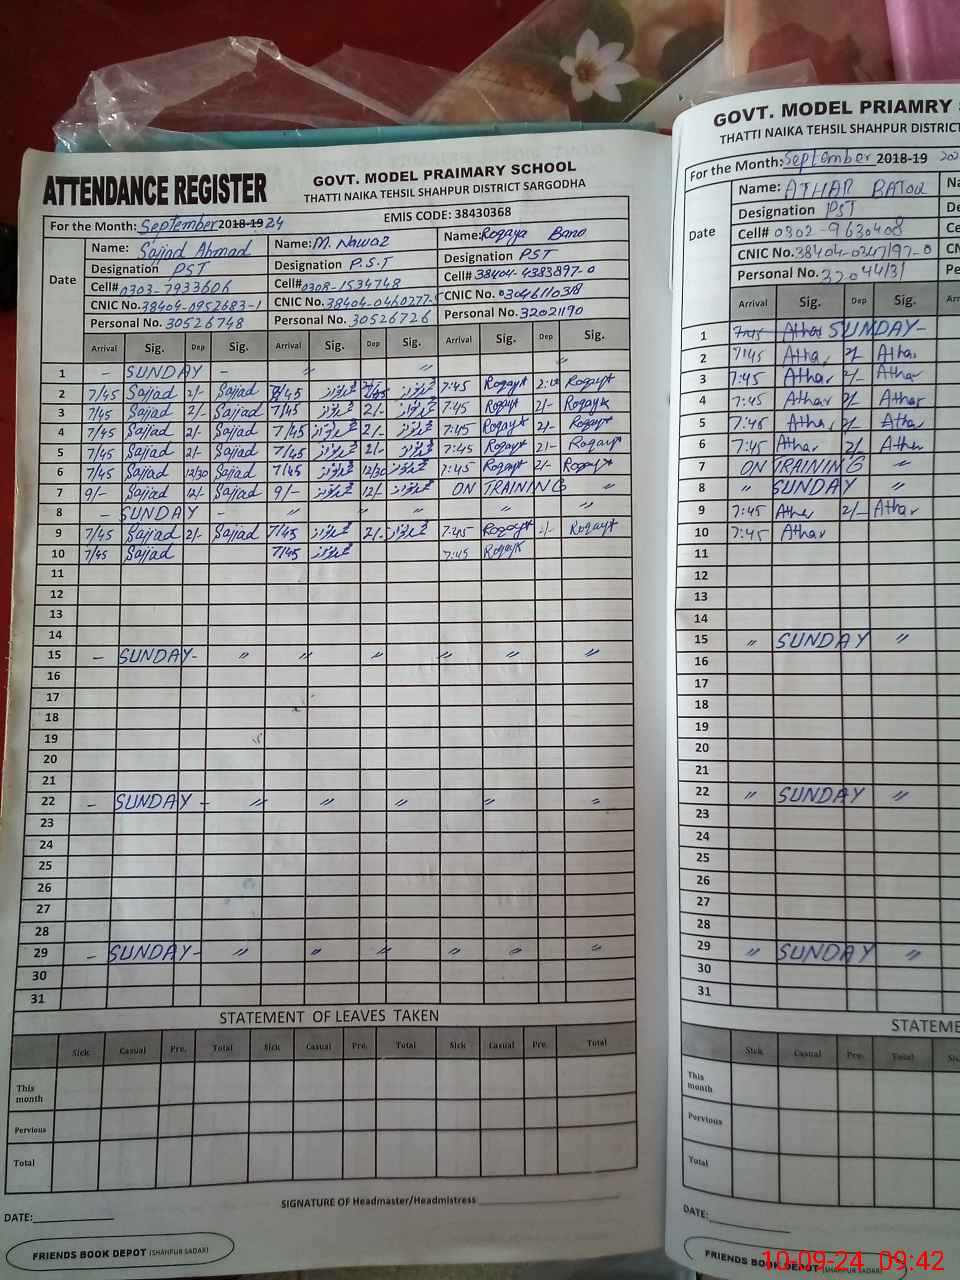 ATTENDANCE REGISTER
GOVT. MODEL PRAIMARY SCHOOL
THATTI NAIKA TEHSIL SHAHPUR DISTRICT SARGODHA
For the Month: September 2018-19 24 EMIS CODE: 38430368
Date
Name: Sajjad Ahmad Name: M. Nawaz Name: Roqaya Bano
Designation PST Designation P.S.T Designation PST
Cell# 0303-7933606 Cell# 0308-1534748 Cell# 38404-4383897-0
CNIC No. 38404-0952683-1 CNIC No. 38404-0460277- CNIC No. 03046110318
Personal No. 30526748 Personal No. 30526726 Personal No. 32021190
Arrival Sig. Dep Sig. Arrival Sig. Dep Sig. Arrival Sig. Dep Sig.
1 - SUNDAY - " " "
2 7/45 Sajjad 2/- Sajjad 7/45 محمد نواز محمد نواز 7:45 Roqaya Roqaya
3 7/45 Sajjad 2/- Sajjad 7/45 محمد نواز 2/- محمد نواز 7:45 Roqaya 2/- Roqaya
4 7/45 Sajjad 2/- Sajjad 7/45 محمد نواز 2/- محمد نواز 7:45 Roqaya 2/- Roqaya
5 7/45 Sajjad 2/- Sajjad 7/45 محمد نواز 2/- محمد نواز 7:45 Roqaya 2/- Roqaya
6 7/45 Sajjad 12/30 Sajjad 7/45 محمد نواز 12/30 محمد نواز 7:45 Roqaya 2/- Roqaya
7 9/- Sajjad 12/- Sajjad 9/- محمد نواز 12/- محمد نواز ON TRAINING "
8 - SUNDAY - " " " " "
9 7/45 Sajjad 2/- Sajjad 7/45 محمد نواز 2/- محمد نواز 7:45 Roqaya 2/- Roqaya
10 7/45 Sajjad 7/45 محمد نواز 7:45 Roqaya
11
12
13
14
15 - SUNDAY - " " " " " "
16
17
18
19
20
21
22 - SUNDAY - " " " " "
23
24
25
26
27
28
29 - SUNDAY - " " " " " "
30
31
STATEMENT OF LEAVES TAKEN
Sick Casual Pre. Total Sick Casual Pre. Total Sick Casual Pre. Total
This month
Pervious
Total
SIGNATURE OF Headmaster/Headmistress
DATE:
FRIENDS BOOK DEPOT (SHAHPUR SADAR)
GOVT. MODEL PRIAMRY
THATTI NAIKA TEHSIL SHAHPUR DISTRICT
For the Month: September 2018-19
Date
Name: ATHAR BATOOL
Designation PST
Cell# 0302-9630408
CNIC No. 38404-0347197-0
Personal No. 32044131
Arrival Sig. Dep Sig.
1 7:45 Athar SUNDAY-
2 7:45 Athar 2/- Athar
3 7:45 Athar 2/- Athar
4 7:45 Athar 2/- Athar
5 7:45 Athar 2/- Athar
6 7:45 Athar 2/- Athar
7 ON TRAINING "
8 " SUNDAY "
9 7:45 Athar 2/- Athar
10 7:45 Athar
11
12
13
14
15 " SUNDAY "
16
17
18
19
20
21
22 " SUNDAY "
23
24
25
26
27
28
29 " SUNDAY "
30
31
STATEME
Sick Casual Pre. Total
This month
Pervious
Total
DATE:
FRIENDS BOOK DEPOT (SHAHPUR SADAR)
10-09-24 09:42